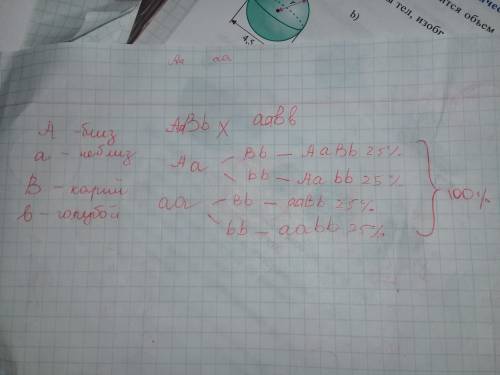 ится объем
тел, изобр
b)
4,5
Aa aa
A - близ
a - неблиз
B - карий
в - голубой
AaBb x aaBb
Aa - Bb - AaBb 25%
bb - Aabb 25%
aa - Bb - aaBb 25%
bb - aabb 25%
100%